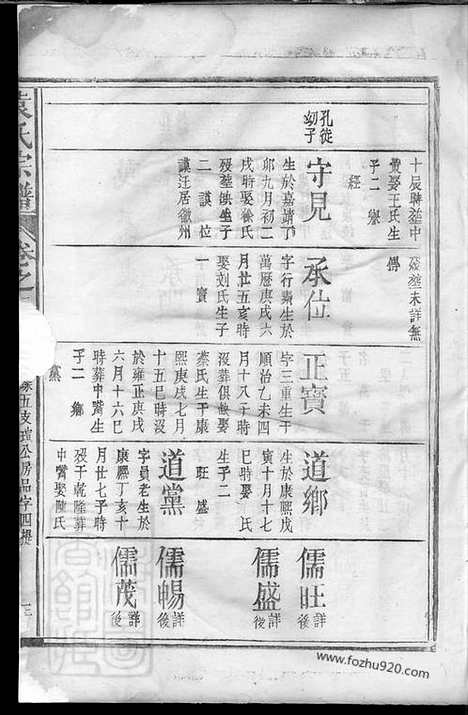 十辰時塟中
黃娶王氏生
子二 譽
經
孔從
幼子
守見
生於嘉靖丁
卯九月初二
戌時娶徐氏
歿塟缺生子
二 謨位
謨迁居徽州
傳
歿塟未詳無
承位
字行素生於
萬曆庚戌六
月廿五亥時
娶刘氏生子
一 寶
正寶
字三重生于
順治乙未四
月十八子時
沒葬俱缺娶
蔡氏生于康
熙庚戌七月
十五巳時沒
於雍正庚戌
六月十六巳
時葬中嘴生
子二 鄉
黨
道鄉
生於康熙戊
寅十月十七
巳時娶 氏
生子二
旺盛
道黨
字員老生於
康熙丁亥十
月廿七子時
歿于乾隆葬
中嘴娶陳氏
儒旺 詳後
儒盛 詳後
儒暢 詳後
儒茂 詳後
袁氏宗譜
卷之
五支瑄公房品字四樓
十三
www.fozhu920.com